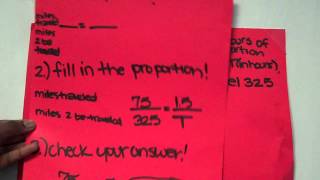 miles
traveled = 
miles
2 be
traveled
2.) fill in the proportion!
miles traveled 75 = 1.5
miles 2 be traveled 325 T
) check your answer!
75
ours of
portion
(in hours).
el 325